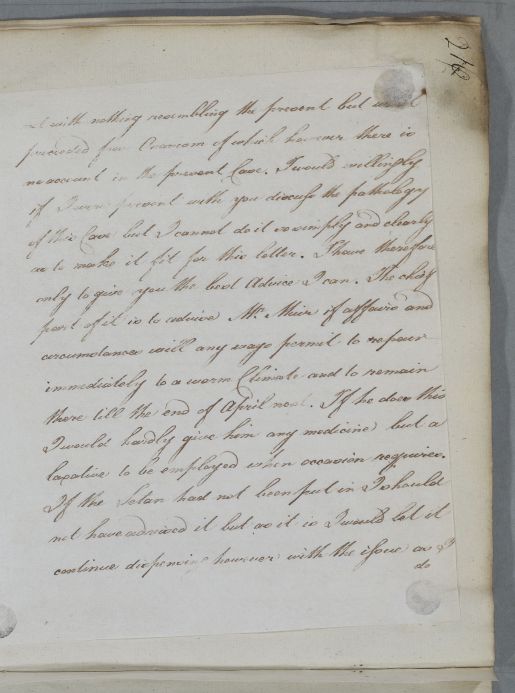 274
with nothing resembling the present but what
proceeded from of which however there is
no account in the present Case. I would willingly
if I were present with you discuss the pathology
of this Case but I cannot do it so simply and clearly
as to make it fit for this letter. I have therefore
only to give you the best Advice I can. The chief
part of it is to advise Mr. Muir if affairs and
circumstances will any ways permit to repair
immediately to a warm Climate and to remain
there till the end of April next. If he does this
I would hardly give him any medicine but a
laxative to be employed when occasion requires.
If the Setan had not been put in I should
not have advised it but as it is I would let it
continue dispensing however with the issue as I
do